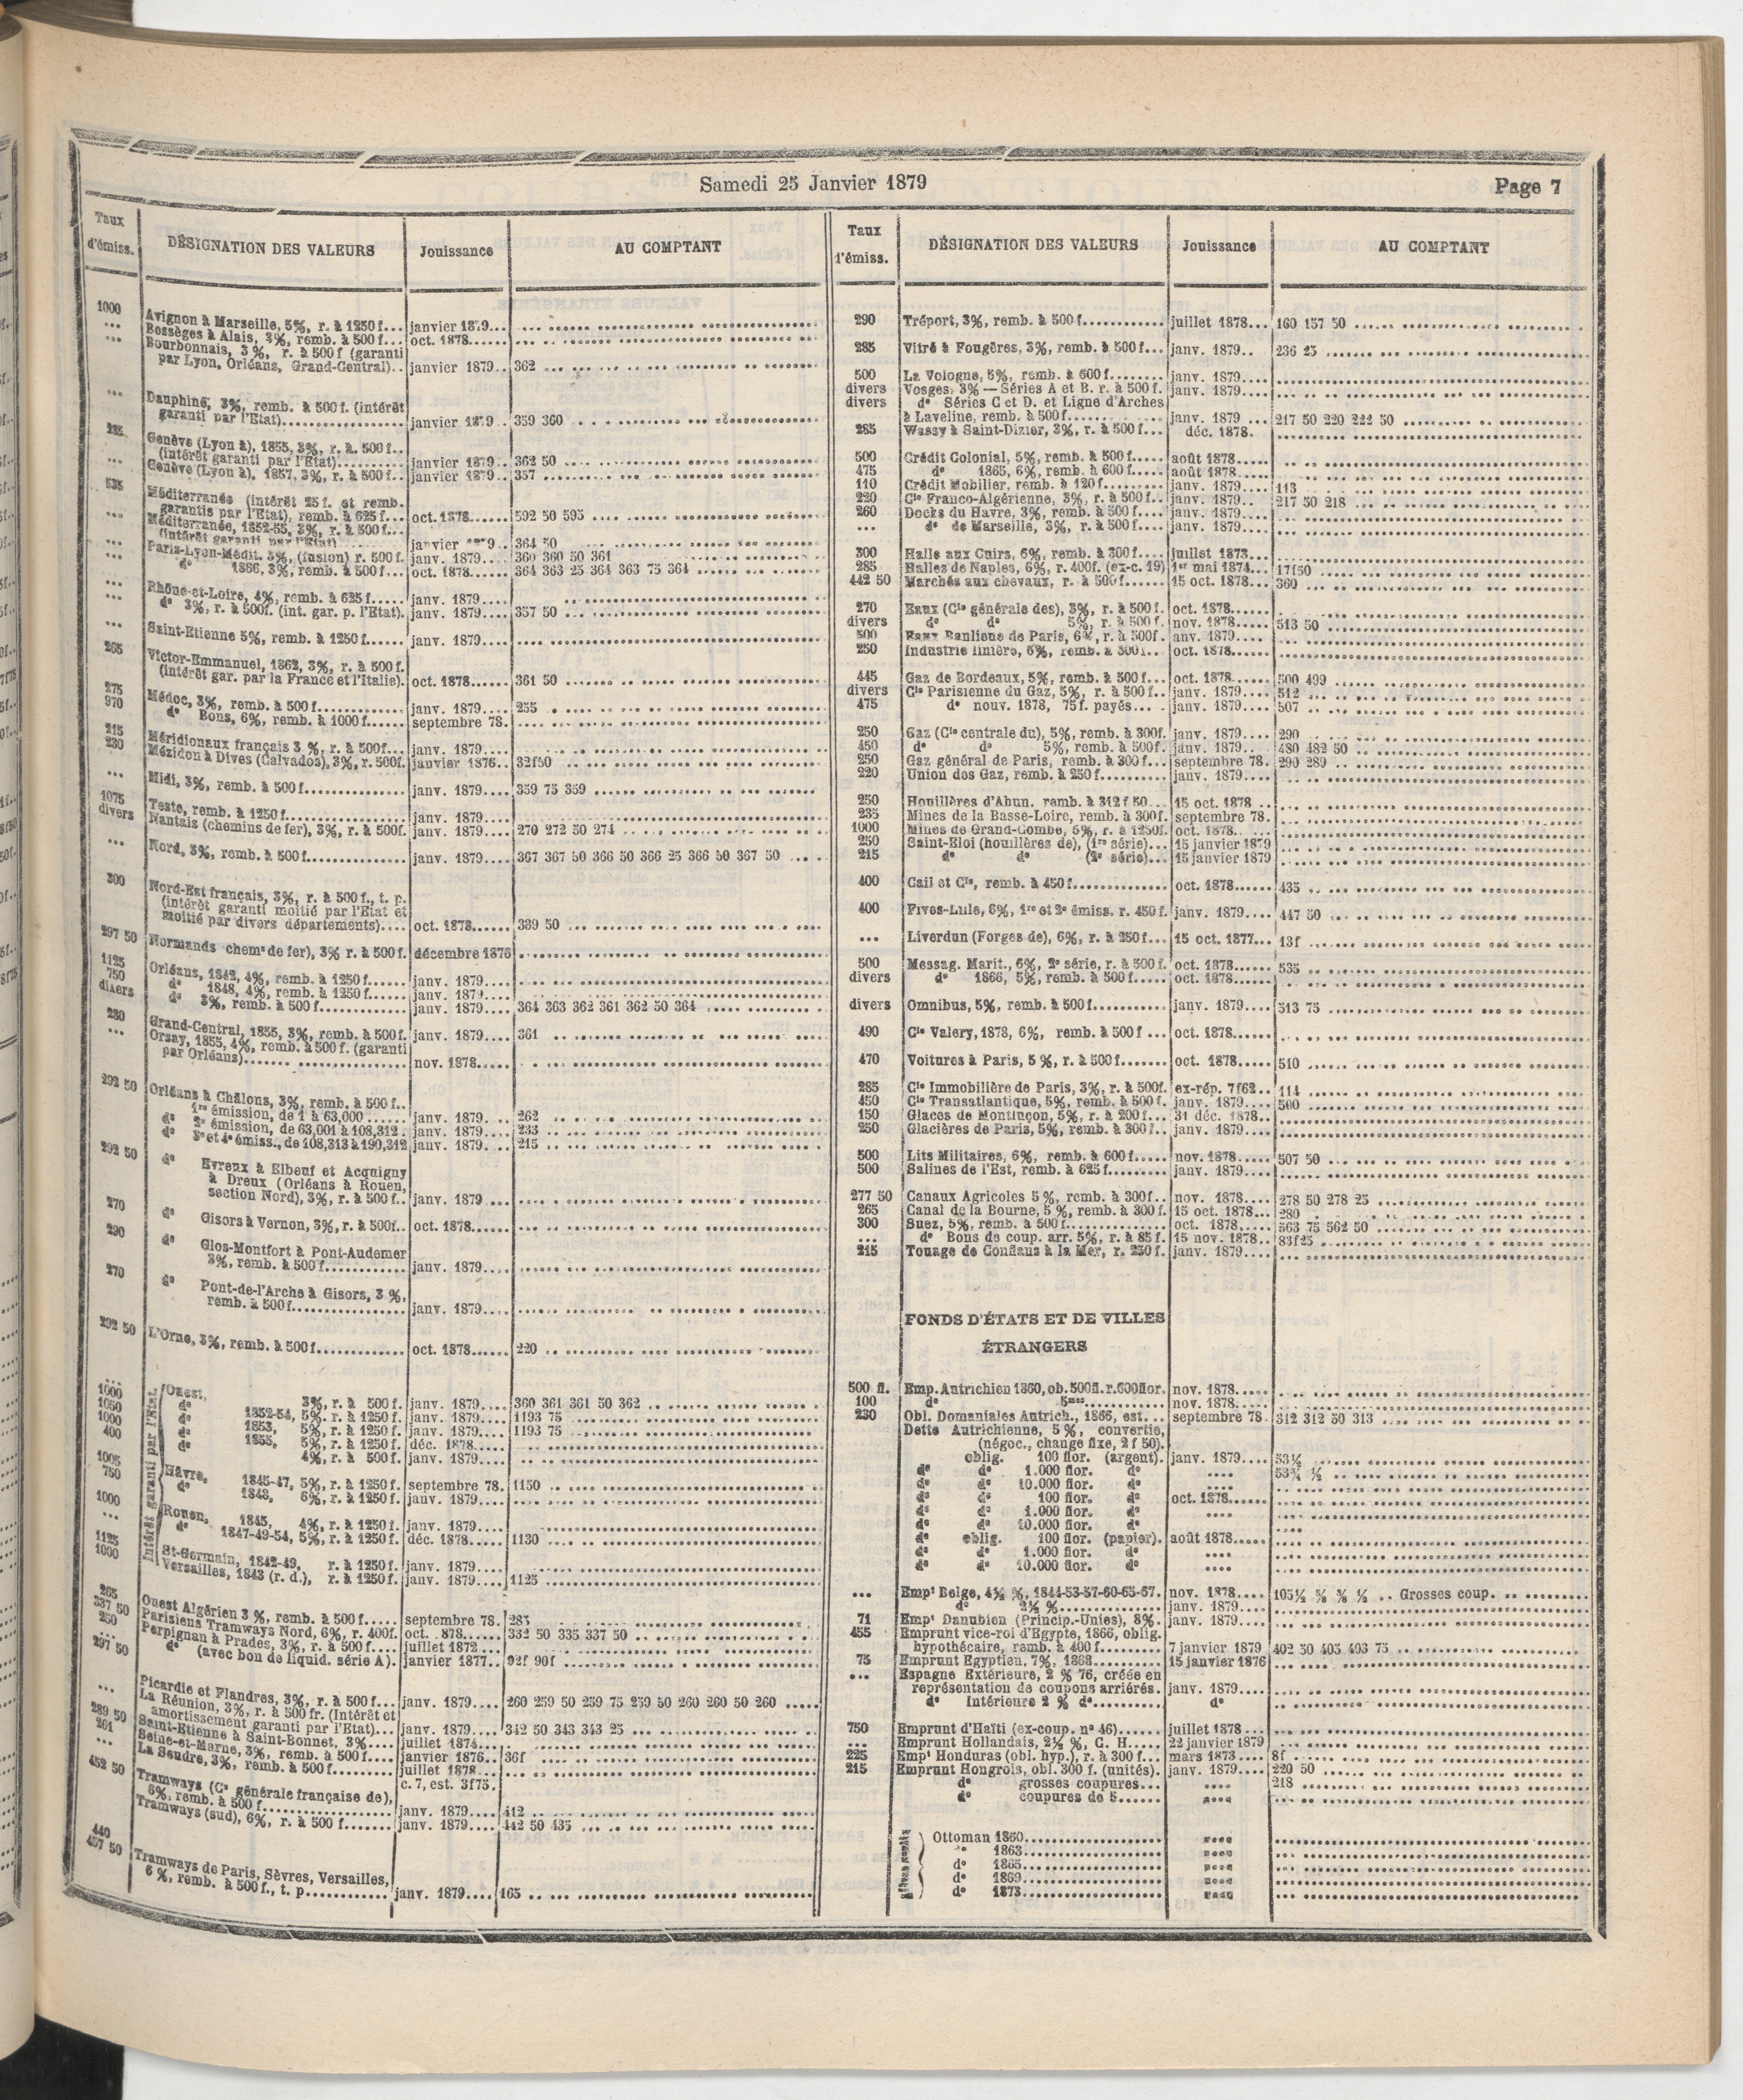 Samedi 25 Janvier 1879
Page 7
Taux d'émiss. DÉSIGNATION DES VALEURS Jouissance AU COMPTANT
1000 Avignon à Marseille, 5%, r. à 1250 f... janvier 1879...
... Bessèges à Alais, 3%, remb. à 500 f... oct. 1878......
... Bourbonnais, 3%, r. à 500 f (garanti
par Lyon, Orléans, Grand-Central).. janvier 1879.. 362
... Dauphiné, 3%, remb. à 500 f. (intérêt
garanti par l'Etat)............... janvier 1879.. 359 360
285 Genève (Lyon à), 1855, 3%, r. à. 500 f..
(intérêt garanti par l'Etat).......... janvier 1879.. 362 50
... Genève (Lyon à), 1857, 3%, r. à 500 f.. janvier 1879.. 357
535 Méditerranée (intérêt 25 f. et remb.
garantis par l'Etat), remb. à 625 f... oct. 1878...... 592 50 595
... Méditerranée, 1852-55, 3%, r. à 500 f...
(intérêt garanti par l'Etat) janvier 1879.. 364 50
... Paris-Lyon-Médit. 3%, (fusion) r. 500 f. janv. 1879.... 360 360 50 361
... d° 1866, 3%, remb. à 500 f... oct. 1878...... 364 363 25 364 363 75 364
... Rhône-et-Loire, 4%, remb. à 625 f..... janv. 1879....
... d° 3%, r. à 500f. (int. gar. p. l'Etat). janv. 1879.... 357 50
... Saint-Etienne 5%, remb. à 1250 f...... janv. 1879....
265 Victor-Emmanuel, 1862, 3%, r. à 500 f.
(intérêt gar. par la France et l'Italie). oct. 1878...... 361 50
275 Médoc, 3%, remb. à 500 f............ janv. 1879.... 255
970 d° Bons, 6%, remb. à 1000 f...... septembre 78.
215 Méridionaux français 3 %, r. à 500f... janv. 1879....
230 Mézidon à Dives (Calvados), 3%, r. 500f. janvier 1876.. 32f50
... Midi, 3%, remb. à 500 f.............. janv. 1879.... 359 75 359
1075 Teste, remb. à 1250 f................ janv. 1879....
divers Nantais (chemins de fer), 3%, r. à 500f. janv. 1879.... 270 272 50 274
... Nord, 3%, remb. à 500 f.............. janv. 1879.... 367 367 50 366 50 366 25 366 50 367 50
300 Nord-Est français, 3%, r. à 500 f., t. p.
(intérêt garanti moitié par l'Etat et
moitié par divers départements).... oct. 1878...... 339 50
297 50 Normands chem⁵ de fer), 3% r. à 500 f. décembre 1876
1125 Orléans, 1842, 4%, remb. à 1250 f...... janv. 1879....
750 d° 1848, 4%, remb. à 1250 f...... janv. 1879....
divers d° 3%, remb. à 500 f............. janv. 1879.... 364 363 362 361 362 50 364
280 Grand-Central, 1855, 3%, remb. à 500 f. janv. 1879.... 361
... Orsay, 1855, 4%, remb. à 500 f. (garanti
par Orléans)....... nov. 1878.....
292 50 Orléans à Châlons, 3%, remb. à 500 f..
1re émission, de 1 à 63,000 ...... janv. 1879.. 262
d° 2e émission, de 63,001 à 108,312 . janv. 1879... 233
d° 3e et 4e émiss., de 108,313 à 190,312 janv. 1879... 215
292 50 d° Evreux à Elbeuf et Acquigny
à Dreux (Orléans à Rouen,
section Nord), 3%, r. à 500 f.. janv. 1879....
270 d° Gisors à Vernon, 3%, r. à 500f.. oct. 1878......
290 d° Glos-Montfort à Pont-Audemer
3%, remb. à 500 f............ janv. 1879....
270 d° Pont-de-l'Arche à Gisors, 3 %,
remb. à 500 f................. janv. 1879....
292 50 L'Orne, 3%, remb. à 500 f............. oct. 1878...... 220
Intérêt garanti par l'Etat.
... Ouest, 3%, r. à 500 f. janv. 1879.... 360 361 361 50 362
1000 d° 1852-54, 5%, r. à 1250 f. janv. 1879.... 1193 75
1050 d° 1853, 5%, r. à 1250 f. janv. 1879.... 1193 75
1000 d° 1855, 5%, r. à 1250 f. déc. 1878.....
400 d° 4%, r. à 500 f. janv. 1879....
1005 Hâvre, 1845-47, 5%, r. à 1250 f. septembre 78. 1150
750 d° 1848, 6%, r. à 1250 f. janv. 1879....
1000 Rouen, 1845, 4%, r. à 1250 f. janv. 1879....
... d° 1847-49-54, 5%, r. à 1250 f. déc. 1878..... 1130
1125 St-Germain, 1842-49, r. à 1250 f. janv. 1879....
1000 Versailles, 1843 (r. d.), r. à 1250 f. janv. 1879.... 1125
265 Ouest Algérien 3 %, remb. à 500 f..... septembre 78. 285
337 50 Parisiens Tramways Nord, 6%, r. 400f. oct. . 878...... 332 50 335 337 50
250 Perpignan à Prades, 3%, r. à 500 f.... juillet 1872...
297 50 d° (avec bon de liquid. série A). janvier 1877.. 92f 90f
... Picardie et Flandres, 3%, r. à 500 f... janv. 1879.... 260 259 50 259 75 259 50 260 260 50 260
La Réunion, 3%, r. à 500 fr. (Intérêt et
amortissement garanti par l'Etat)... janv. 1879.... 342 50 343 343 25
289 50 Saint-Etienne à Saint-Bonnet, 3%.... juillet 1874...
261 Seine-et-Marne, 3%, remb. à 500 f..... janvier 1876.. 36f
... La Seudre, 3%, remb. à 500 f......... juillet 1878...
c. 7, est. 3f75.
452 50 Tramways (Ce générale française de),
6%, remb. à 500 f................ janv. 1879.... 412
Tramways (sud), 6%, r. à 500 f....... janv. 1879.... 442 50 435
440
457 50 Tramways de Paris, Sèvres, Versailles,
6 %, remb. à 500 f., t. p........... janv. 1879.... 165
Taux l'émiss. DÉSIGNATION DES VALEURS Jouissance AU COMPTANT
290 Tréport, 3%, remb. à 500 f............ juillet 1878... 160 157 50
285 Vitré à Fougères, 3%, remb. à 500 f... janv. 1879.. 236 25
500 La Vologne, 5%, remb. à 600 f........ janv. 1879....
divers Vosges, 3% — Séries A et B. r. à 500 f. janv. 1879....
divers d° Séries C et D. et Ligne d'Arches
à Laveline, remb. à 500 f............ janv. 1879 ... 217 50 220 222 50
285 Wassy à Saint-Dizier, 3%, r. à 500 f... déc. 1878.
500 Crédit Colonial, 5%, remb. à 500 f..... août 1878.....
475 d° 1865, 6%, remb. à 600 f..... août 1878.....
110 Crédit Mobilier, remb. à 120 f......... janv. 1879.... 113
220 Cie Franco-Algérienne, 3%, r. à 500 f.. janv. 1879.. 217 50 218
260 Docks du Havre, 3%, remb. à 500 f.... janv. 1879....
... d° de Marseille, 3%, r. à 500 f.... janv. 1879....
300 Halle aux Cuirs, 6%, remb. à 300 f.... juillet 1873...
285 Halles de Naples, 6%, r. 400f. (ex-c. 19) 1er mai 1874... 17f50
442 50 Marchés aux chevaux, r. à 500 f...... 15 oct. 1878... 360
270 Eaux (Cie générale des), 3%, r. à 500 f. oct. 1878......
divers d° d° 5%, r. à 500 f. nov. 1878..... 513 50
500 Eaux Banlieue de Paris, 6%, r. à 500f. anv. 1879....
250 Industrie linière, 6%, remb. à 300 f... oct. 1878......
445 Gaz de Bordeaux, 5%, remb. à 500 f... oct. 1878...... 500 499
divers Cie Parisienne du Gaz, 5%, r. à 500 f.. janv. 1879.... 512
475 d° nouv. 1878, 75 f. payés... . janv. 1879.... 507
250 Gaz (Cie centrale du), 5%, remb. à 300f. janv. 1879.... 290
450 d° d° 5%, remb. à 500f. janv. 1879.... 480 482 50
250 Gaz général de Paris, remb. à 300 f... septembre 78. 290 289
220 Union des Gaz, remb. à 250 f.......... janv. 1879....
250 Houillères d'Ahun, remb. à 312 f 50... 15 oct. 1878 ..
235 Mines de la Basse-Loire, remb. à 300f. septembre 78.
1000 Mines de Grand-Combe, 5%, r. à 1250f. oct. 1878.
250 Saint-Eloi (houillères de), (1re série)... 15 janvier 1879
215 d° d° (2e série)... 15 janvier 1879
400 Cail et Cie, remb. à 450 f............. oct. 1878...... 435
400 Fives-Lille, 6%, 1re et 2e émiss. r. 450 f. janv. 1879.... 447 50
... Liverdun (Forges de), 6%, r. à 250 f... 15 oct. 1877... 13f
500 Messag. Marit., 6%, 2e série, r. à 500 f. oct. 1878...... 535
divers d° 1866, 5%, remb. à 500 f..... oct. 1878......
divers Omnibus, 5%, remb. à 500 f.......... janv. 1879.... 513 75
490 Cie Valery, 1878, 6%, remb. à 500 f ... oct. 1878......
470 Voitures à Paris, 5 %, r. à 500 f....... oct. 1878...... 510
285 Cie Immobilière de Paris, 3%, r. à 500f. ex-rép. 7f62.. 114
450 Cie Transatlantique, 5%, remb. à 500 f. janv. 1879.... 500
150 Glaces de Montluçon, 5%, r. à 200 f... 31 déc. 1878..
250 Glacières de Paris, 5%, remb. à 300 f.. janv. 1879....
500 Lits Militaires, 6%, remb. à 600 f..... nov. 1878..... 507 50
500 Salines de l'Est, remb. à 625 f......... janv. 1879....
277 50 Canaux Agricoles 5 %, remb. à 300f.. nov. 1878.... 278 50 278 25
265 Canal de la Bourne, 5 %, remb. à 300 f. 15 oct. 1878... 280
300 Suez, 5%, remb. à 500 f............... oct. 1878..... 563 75 562 50
... d° Bons de coup. arr. 5%, r. à 85 f. 15 nov. 1878.. 83f25
215 Touage de Conflans à la Mer, r. 250 f. janv. 1879....
FONDS D'ÉTATS ET DE VILLES
ÉTRANGERS
500 fl. Emp. Autrichien 1860, ob. 500fl. r. 600flor. nov. 1878.....
100 d° 5mes............. nov. 1878.....
230 Obl. Domaniales Autrich., 1866, est... septembre 78. 312 312 50 313
Dette Autrichienne, 5%, convertie,
(négoc., change fixe, 2 f 50).
oblig. 100 flor. (argent). janv. 1879.... 53¼
d° d° 1.000 flor. d° .... 53¾ ½
d° d° 10.000 flor. d° ....
d° d° 100 flor. d° oct. 1878......
d° d° 1.000 flor. d° ....
d° d° 10.000 flor. d°
d° oblig. 100 flor. (papier). août 1878.....
d° d° 1.000 flor. d° ....
d° d° 10.000 flor. d° ....
... Empt Belge, 4½ %, 1844-53-57-60-65-67. nov. 1878.... Grosses coup.
d° 2½ %............. janv. 1879....
71 Empt Danubien (Princip.-Unies), 8%. janv. 1879....
455 Emprunt vice-roi d'Egypte, 1866, oblig.
hypothécaire, remb. à 400 f.......... 7 janvier 1879 402 50 405 403 75
75 Emprunt Egyptien, 7%, 1868.......... 15 janvier 1876
... Espagne Extérieure, 2 % 76, créée en
représentation de coupons arriérés. janv. 1879....
d° Intérieure 2 % d°.......... d°
750 Emprunt d'Haïti (ex-coup. n° 46)...... juillet 1878...
... Emprunt Hollandais, 2½ %, C. H..... 22 janvier 1879
225 Empt Honduras (obl. hyp.), r. à 300 f... mars 1873.... 8f
215 Emprunt Hongrois, obl. 300 f. (unités). janv. 1879.... 220 50
d° grosses coupures... .... 218
d° coupures de 5...... ....
Ottoman 1860.................... ....
1863.................... ....
d° 1865.................... ....
d° 1869.................... ....
d° 1873.................... ....